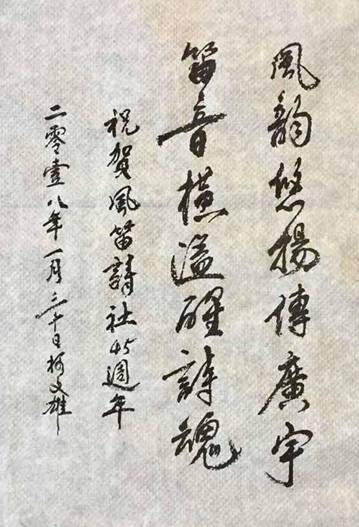 風韵悠揚傳廣宇
笛音橫溢醒詩魂
祝賀風笛詩社45週年
二零壹八年一月三十日柯文雄